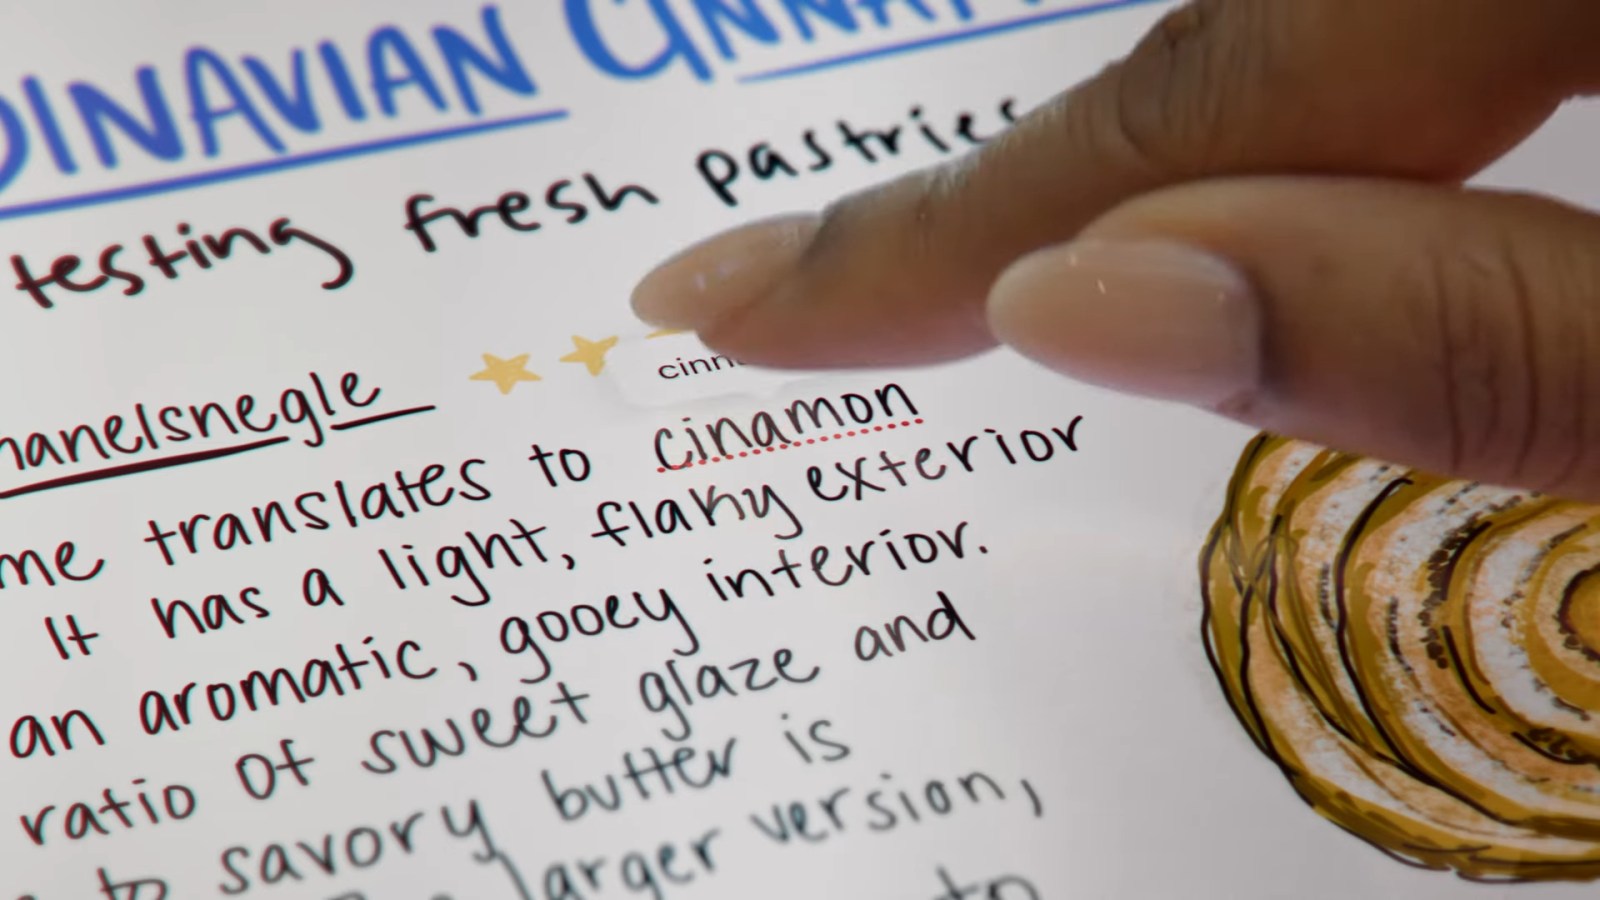 DINAVIAN CINNA
testing fresh pastries
hanelsnegle
cinn
me translates to cinamon
It has a light, flaky exterior
an aromatic, gooey interior.
ratio of sweet glaze and
to savory butter is
larger version,
to